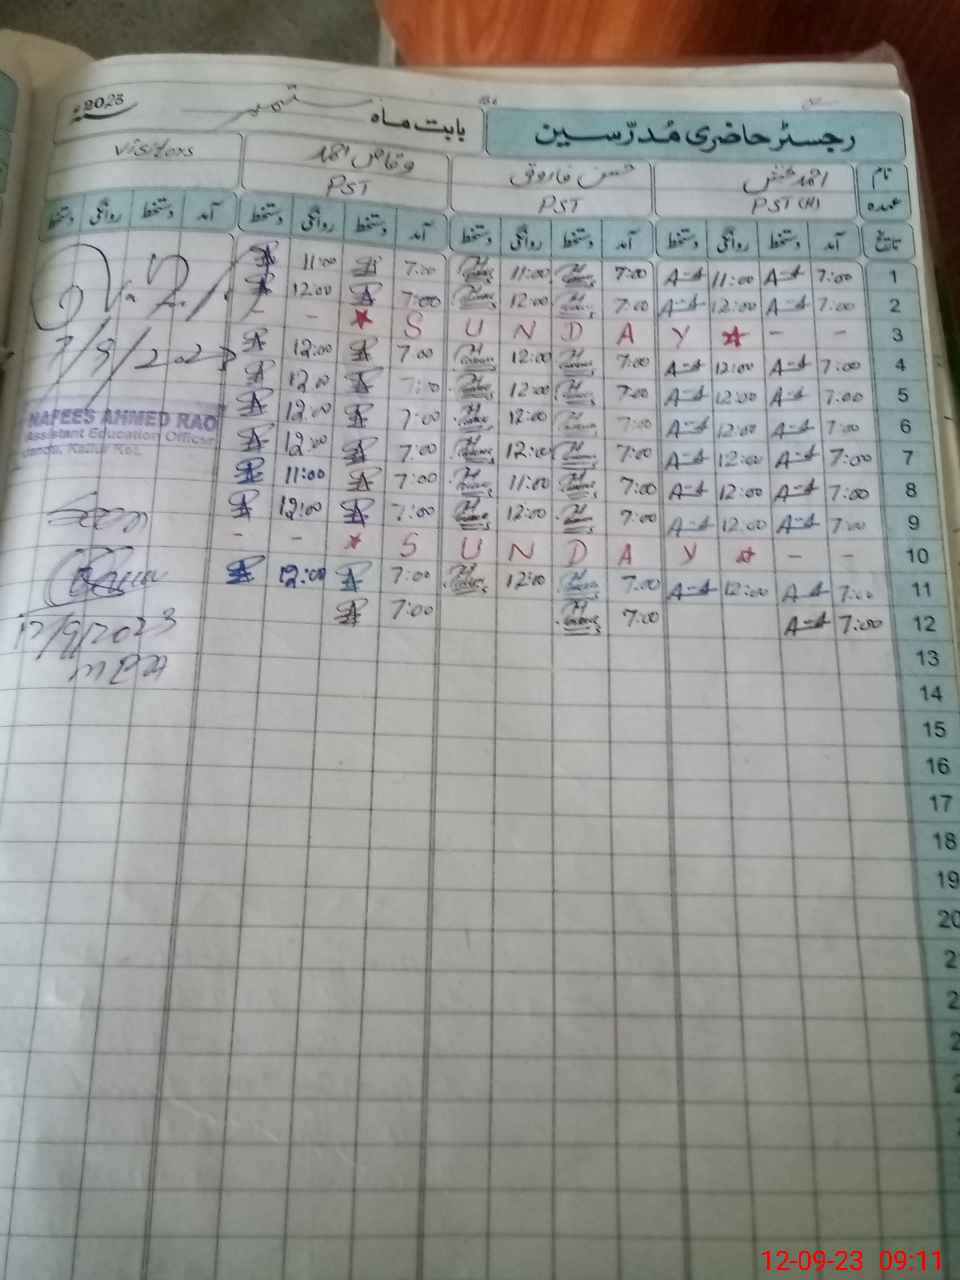 رجسٹر حاضری مُدرّسین
بابت ماہ ستمبر 2023ء
نام احمد بخش حسن فاروق وقاص احمد Visitors
عہدہ PST (H) PST PST
تاریخ آمد دستخط روانگی دستخط آمد دستخط روانگی دستخط آمد دستخط روانگی دستخط آمد دستخط روانگی دستخط
11:00 7:00 11:00 7:00 11:00 7:00 1
12:00 7:00 12:00 7:00 12:00 7:00 2
- - ★ S U N D A Y ★ - - 3
12:00 7:00 12:00 7:00 12:00 7:00 4
12:00 7:00 12:00 7:00 12:00 7:00 5
12:00 7:00 12:00 7:00 12:00 7:00 6
12:00 7:00 12:00 7:00 12:00 7:00 7
11:00 7:00 11:00 7:00 12:00 7:00 8
12:00 7:00 12:00 7:00 12:00 7:00 9
- - ★ S U N D A Y ★ - - 10
12:00 7:00 12:00 7:00 12:00 7:00 11
7:00 7:00 7:00 12
13
14
15
16
17
18
19
20
7/9/2023
NAFEES AHMED RAO
Assistant Education Officer
12/9/2023
12-09-23 09:11